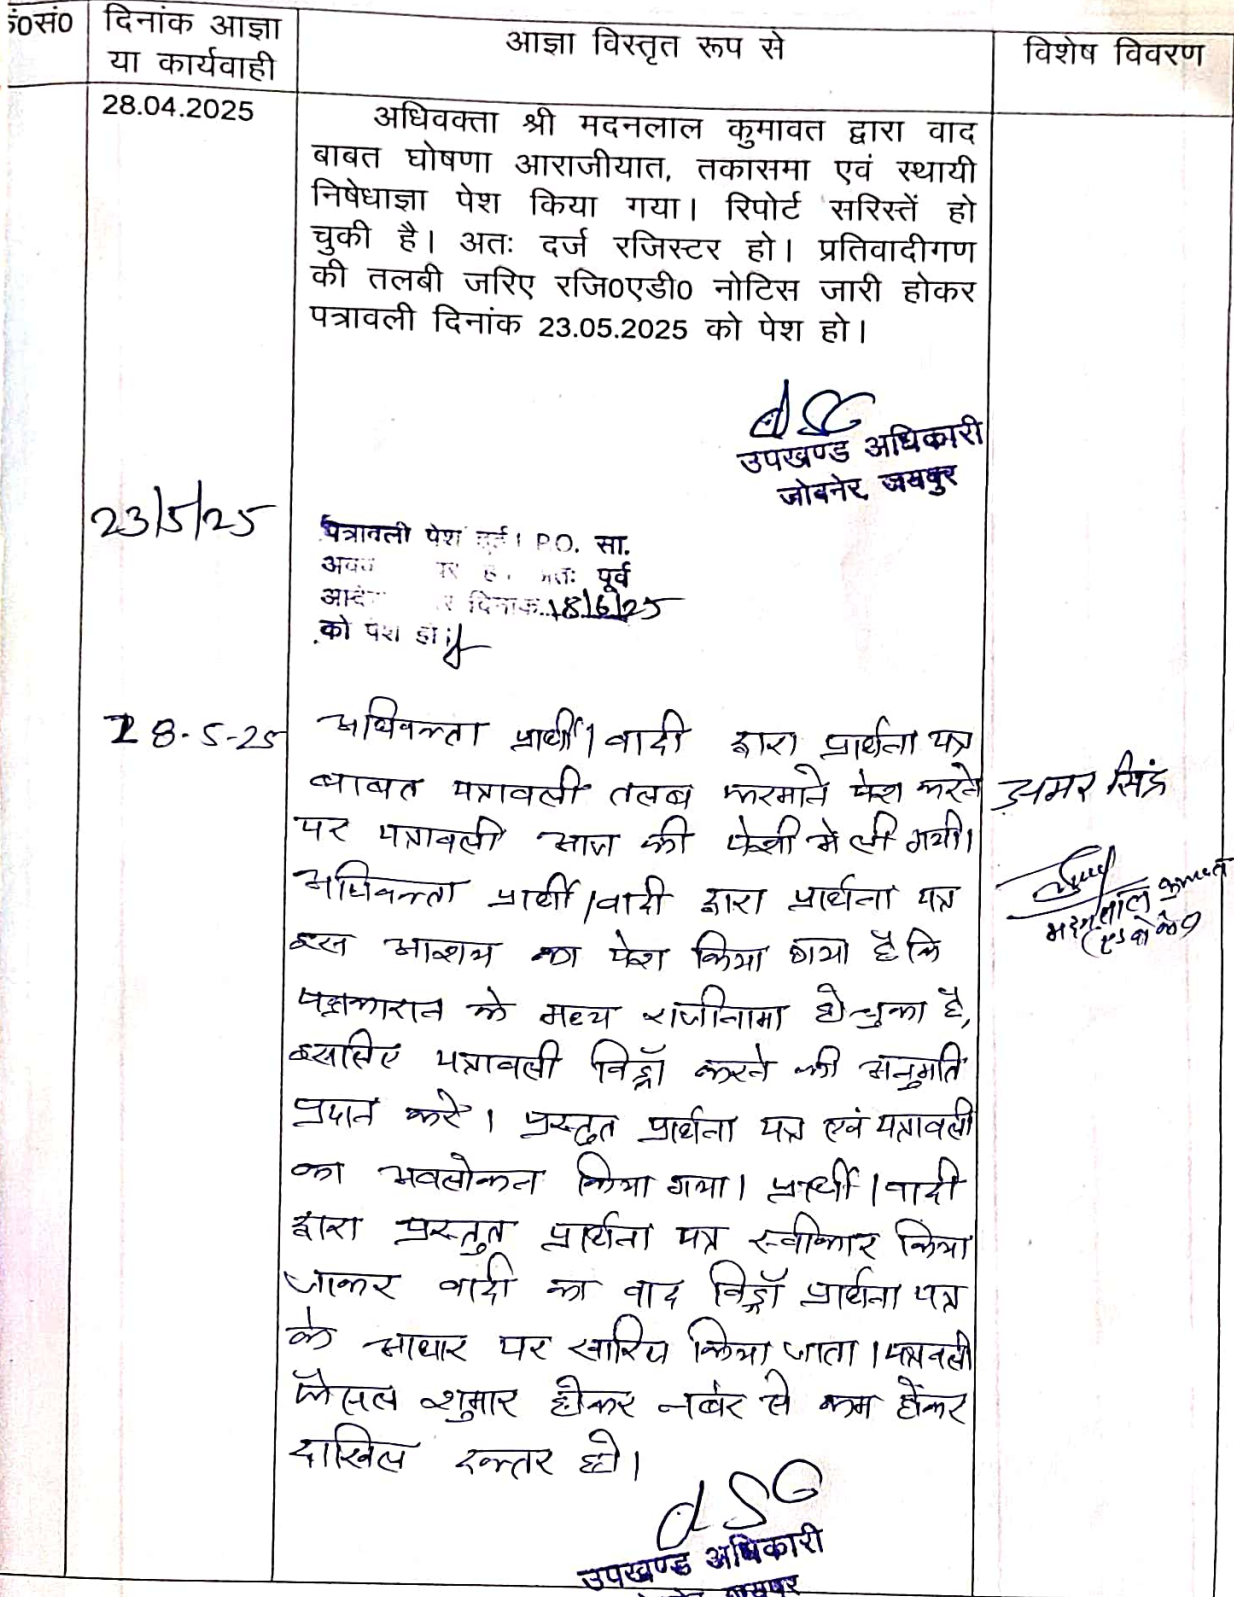 क्र०सं०
दिनांक आज्ञा
या कार्यवाही
आज्ञा विस्तृत रूप से
विशेष विवरण
28.04.2025
अधिवक्ता श्री मदनलाल कुमावत द्वारा वाद
बाबत घोषणा आराजीयात, तकासमा एवं स्थायी
निषेधाज्ञा पेश किया गया। रिपोर्ट सरिस्तें हो
चुकी है। अतः दर्ज रजिस्टर हो। प्रतिवादीगण
की तलबी जरिए रजि0एडी0 नोटिस जारी होकर
पत्रावली दिनांक 23.05.2025 को पेश हो।
उपखण्ड अधिकारी
जोबनेर, जयपुर
23/5/25
पत्रावली पेश हुई। P.O. सा.
पर है. अतः पूर्व
दिनांक 18/6/25
को पेश हो।
28-5-25
अधिवक्ता प्रार्थी/वादी द्वारा प्रार्थना पत्र
बाबत पत्रावली तलब फरमाने पेश करने
पर पत्रावली आज की पेशी मे ली गयी।
अधिवक्ता प्रार्थी/वादी द्वारा प्रार्थना पत्र
इस आशय का पेश किया गया है कि
पक्षकारान के मध्य राजीनामा हो चुका है,
इसलिए पत्रावली विड्रॉ करने की अनुमति
प्रदान करे। प्रस्तुत प्रार्थना पत्र एवं पत्रावली
का अवलोकन किया गया। प्रार्थी/वादी
द्वारा प्रस्तुत प्रार्थना पत्र स्वीकार किया
जाकर वादी का वाद विड्रॉ प्रार्थना पत्र
के आधार पर खारिज किया जाता। पत्रावली
फैसल शुमार होकर नबंर से कम होकर
दाखिल दफ्तर हो।
अमर सिंह
मदनलाल कुमावत
(एडवोकेट)
उपखण्ड अधिकारी
जयपुर